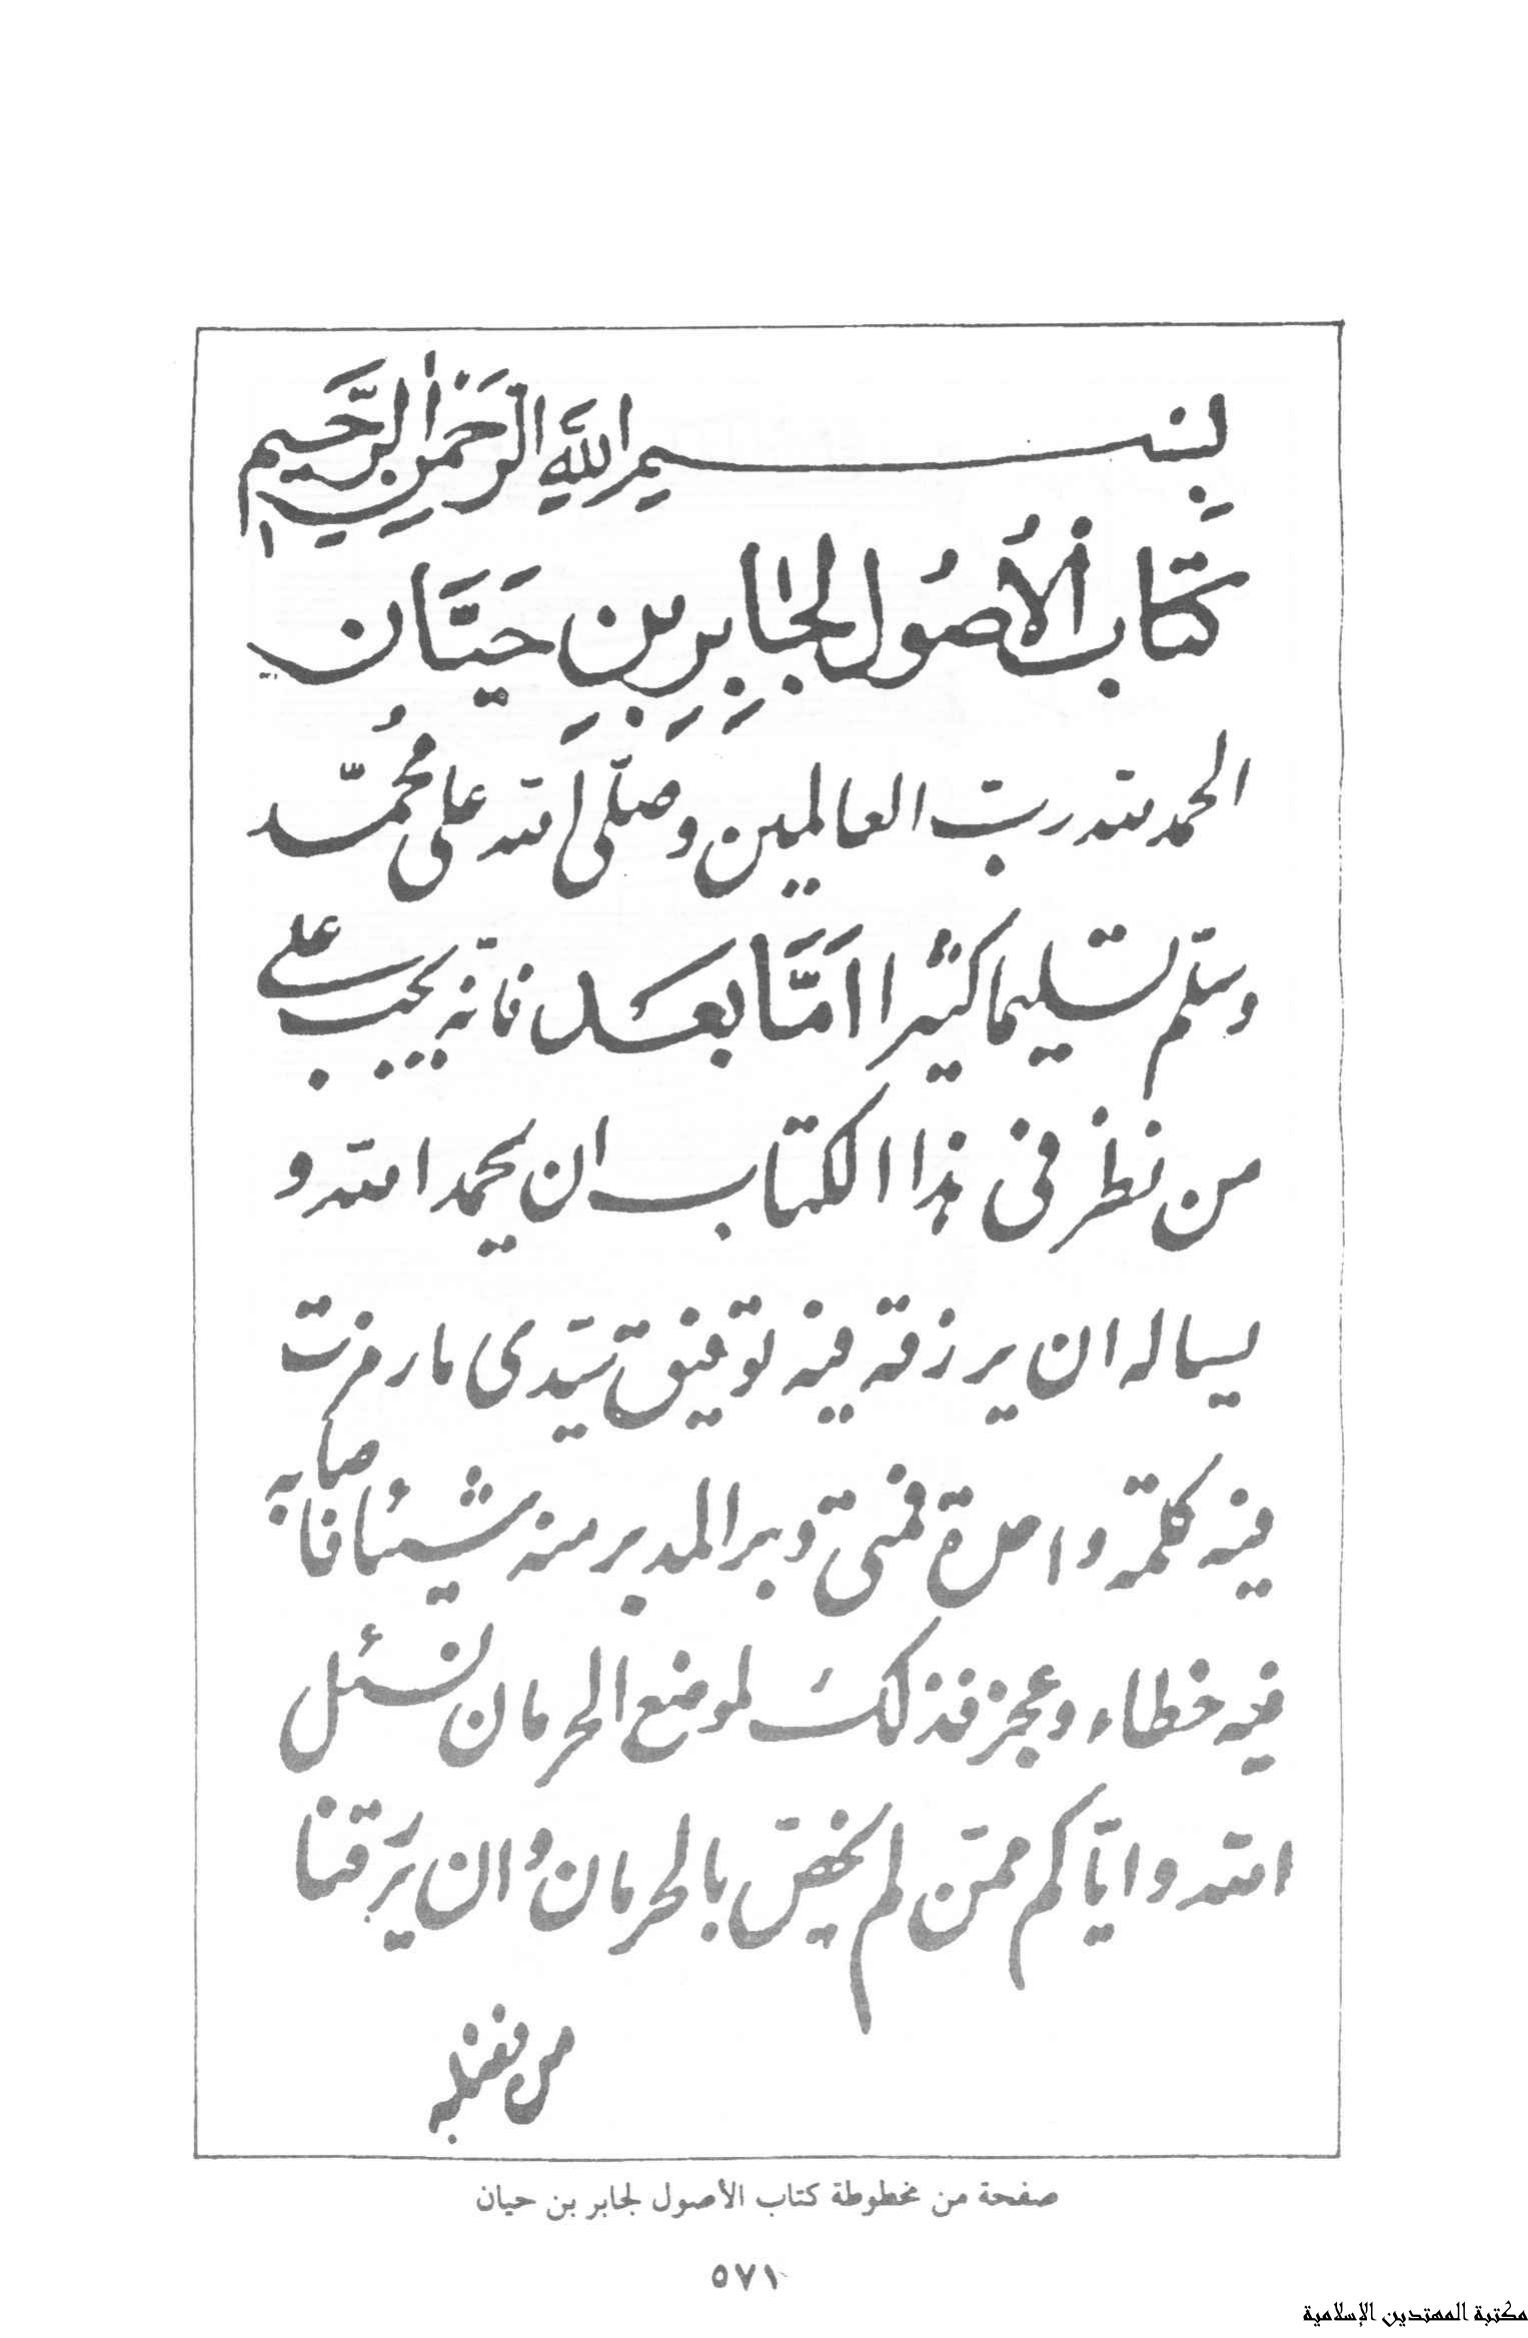 بِسْمِ اللَّهِ الرَّحْمٰنِ الرَّحِيمِ
كتَاب الأُصُول لِجَابِرِ بنِ حَيَّان
الحمد لله ربّ العالمين وصلّى الله على مُحمّد
وسلّم تسليما كثيرا امَّا بعَد فانّه يجب على
من نظر فى هذا الكتاب ان يحمد الله و
يساله ان يرزقه فيه توفيق سيّدى ما رمزت
فيه كلمة واحدة فمتى دبر المدبر منه شيئا فاصابه
فيه خطاء وعجز فذلك لموضع الحرمان نسئل
الله وايّاكم ممّن لم يخصّ بالحرمان وُان يَرزقنا
من فضله
صفحة من مخطوطة كتاب الأصول لجابر بن حيان
٥٧١
مكتبة المهتدين الإسلامية